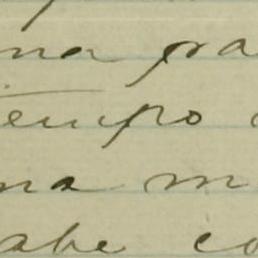 na pa
tempo
na m
abe co